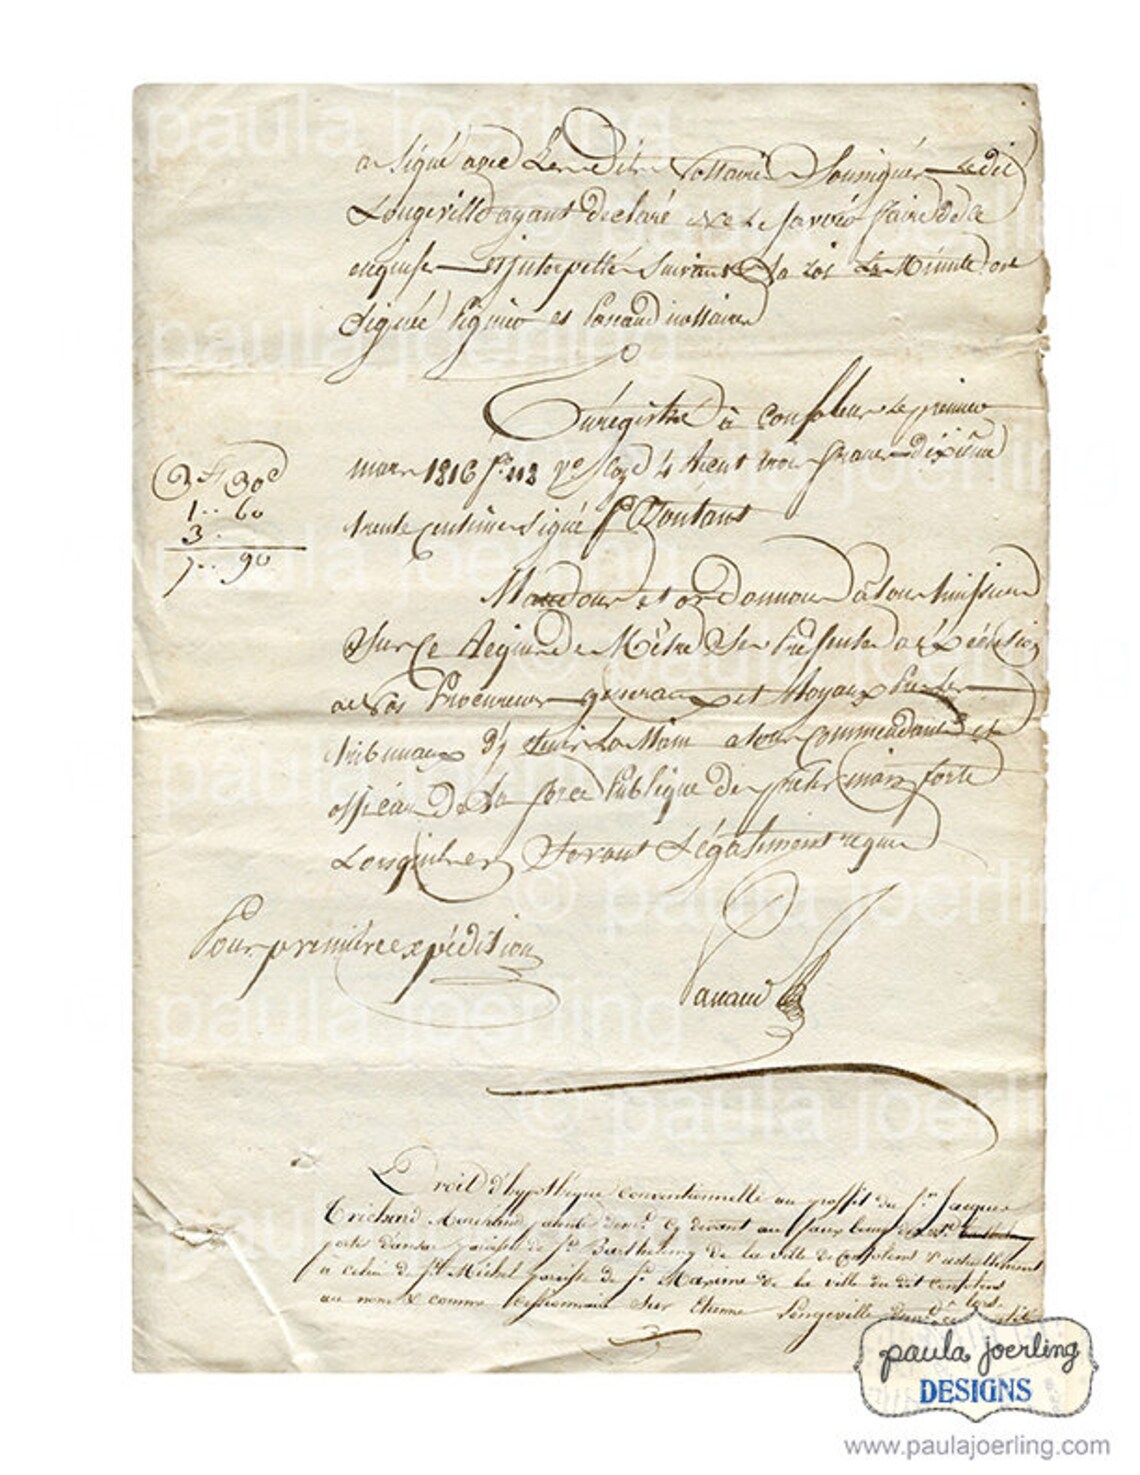 a signé avec Les dits Nottaires Soussignés Ledit
Longeville ayant declaré Ne Le savoir faire de ce
enquis et interpellé suivant La Loi La Minute est
signée et Panaud nottaires
Enregistré à Confolens Le premier
mars 1816 fo 118 Vo Case 4 Reçut trois francs dixième
2 f 30 c
1 .. 60
3 .
7 .. 90
trente Centimes signé
Mandons et ordonnons à tous huissiers
sur Ce Requis de Mêtre Ses Présentes a éxécution
a Nos Procureurs généraux et Royaux Près Les
tribunaux d'y tenir La Main a tous Commandants et
officiers de La force Publique de prêter main forte
Lorsqu'ils en seront Légalement requis
Pour première expédition
Panaud
Droit d'hypothéque conventionnelle au proffit du Sr. Jacques
Trichard Marchand patenté demt. Cy devant au faux bourg
porte paroisse de St. Barthelemy de la ville de Confolens & actuellement
a celui de St. Michel paroisse de St. Maxime de la ville du dit Confolens
au nom & comme Cessionnaire Sur Etienne Longeville
© paula joerling
paula joerling
DESIGNS
www.paulajoerling.com